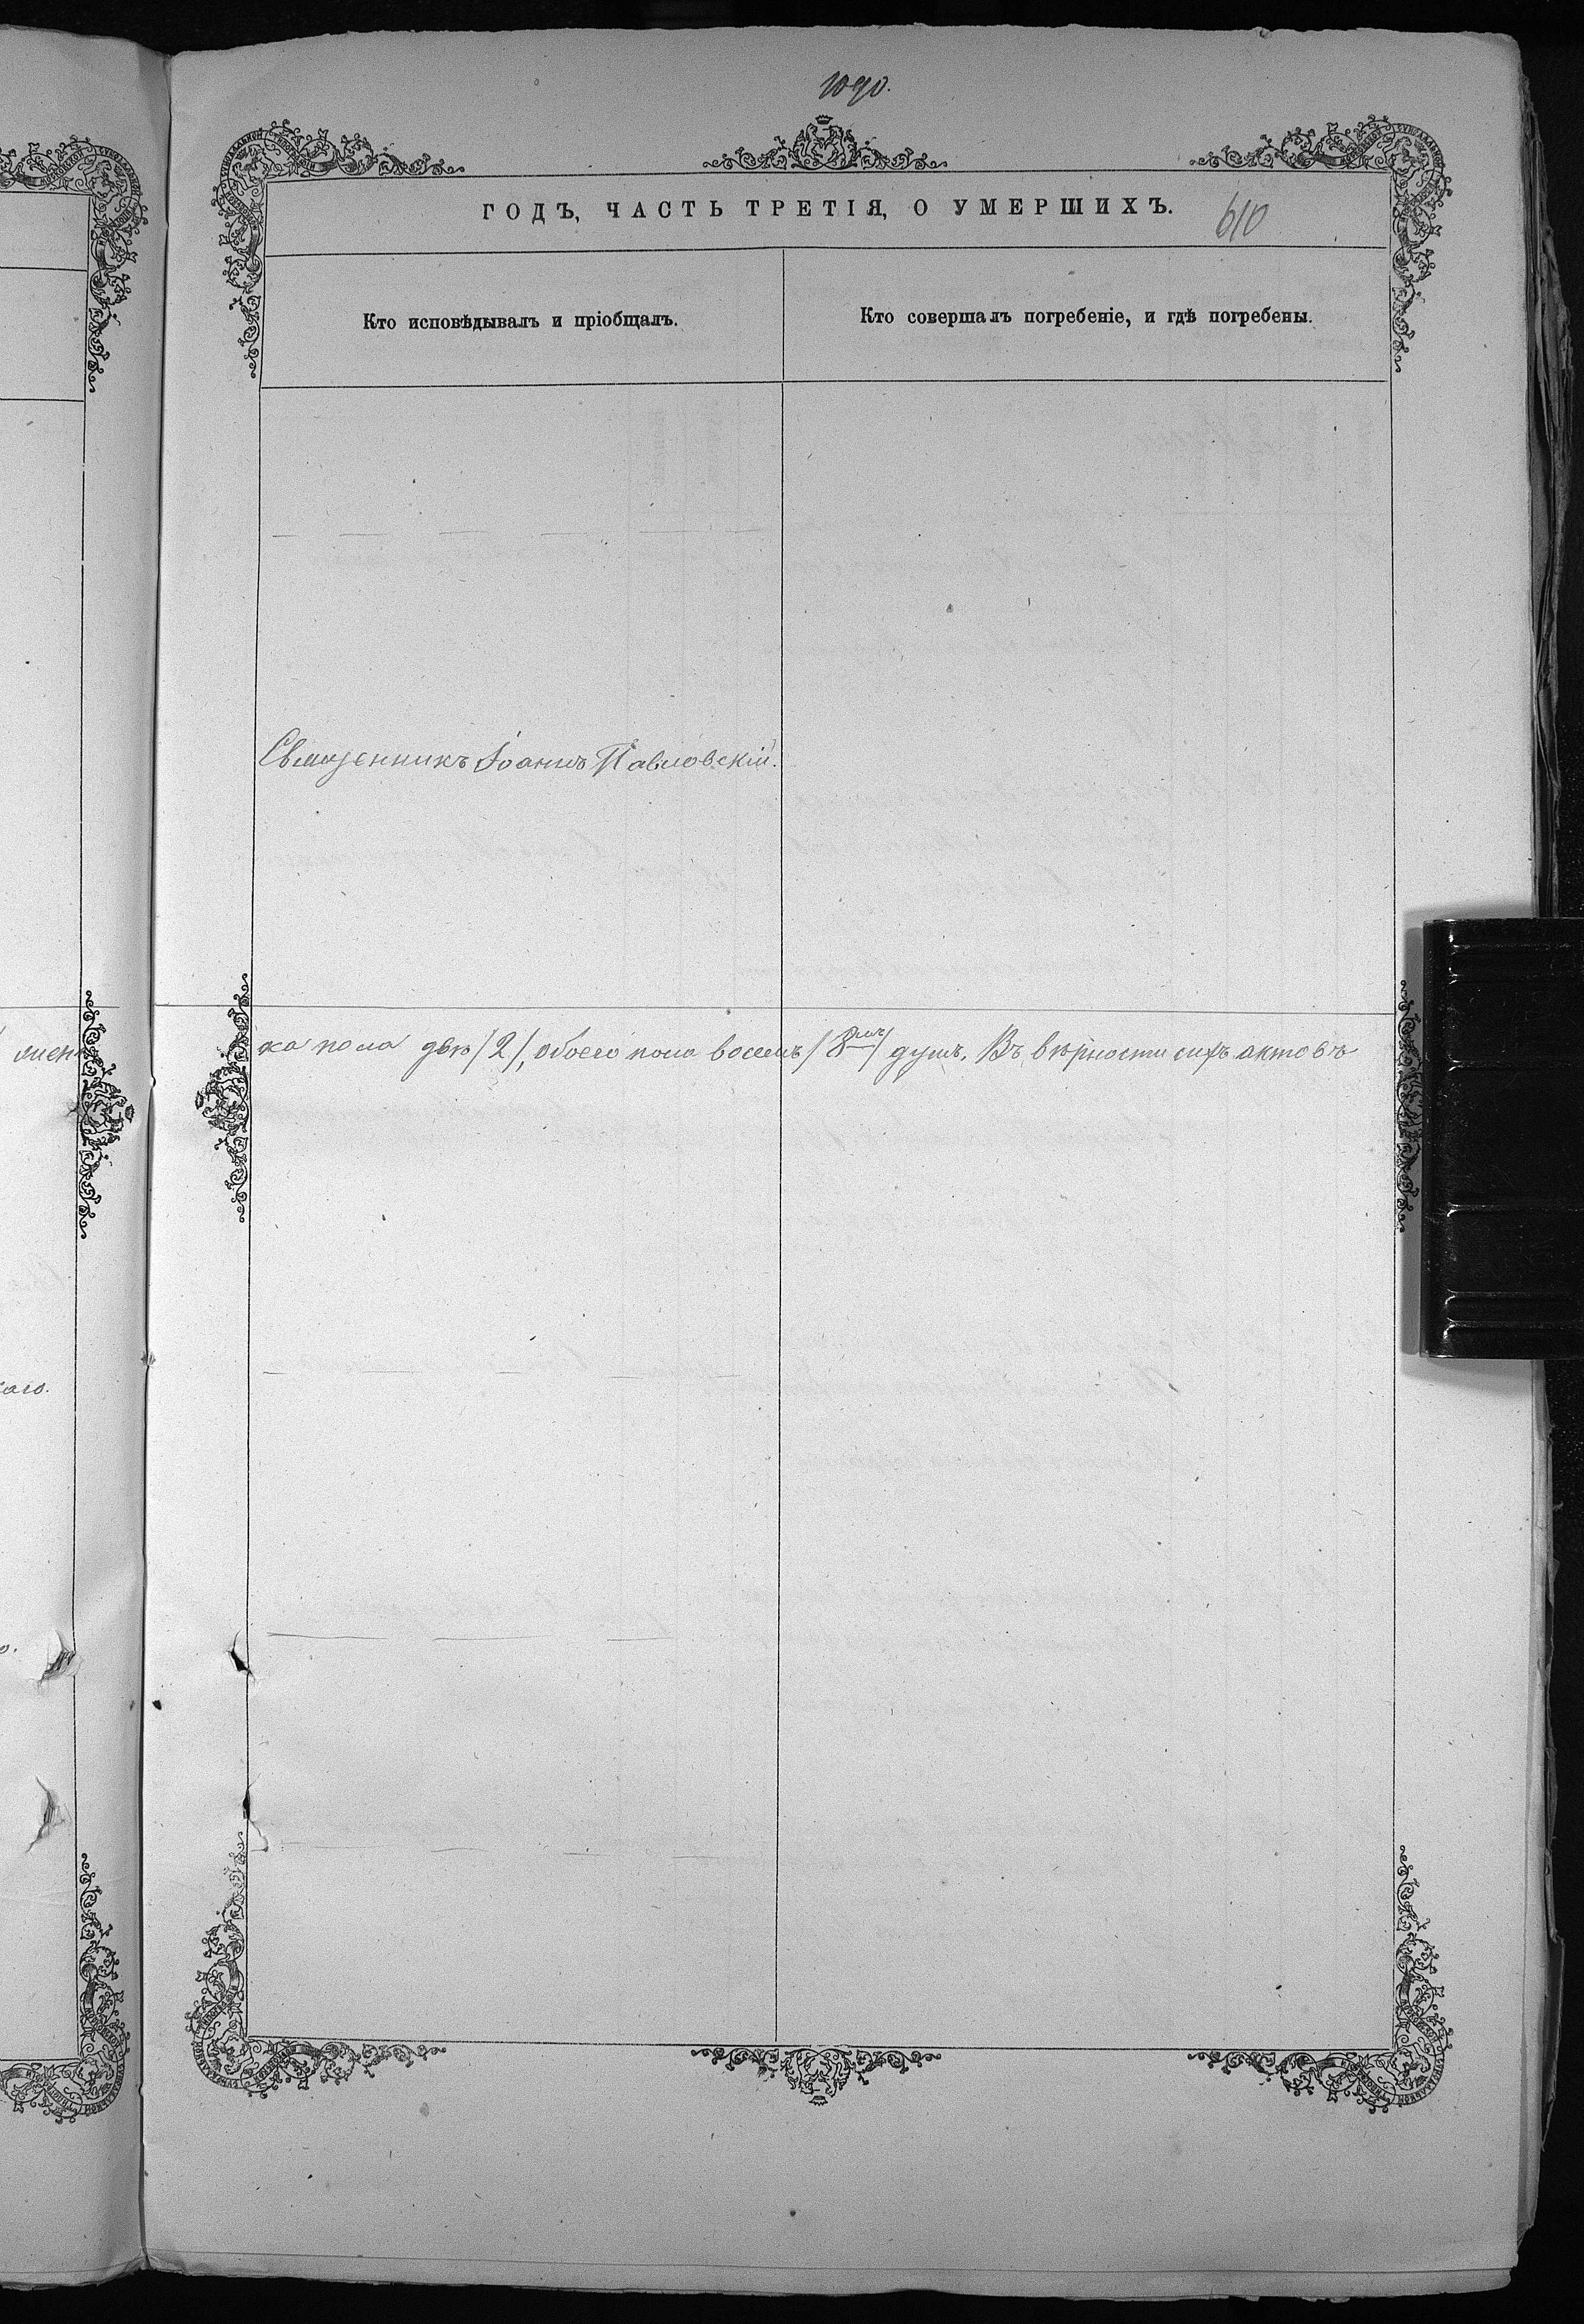 1090.
ГОДЪ, ЧАСТЬ ТРЕТІЯ, О УМЕРШИХЪ.
610
Кто исповѣдывалъ и пріобщалъ.
Кто совершалъ погребеніе, и гдѣ погребены.
Священникъ Іоаннъ Павловскій.
ка пола двѣ /2/, обоего пола восемь /8мь/ душъ. Въ вѣрности сихъ актовъ